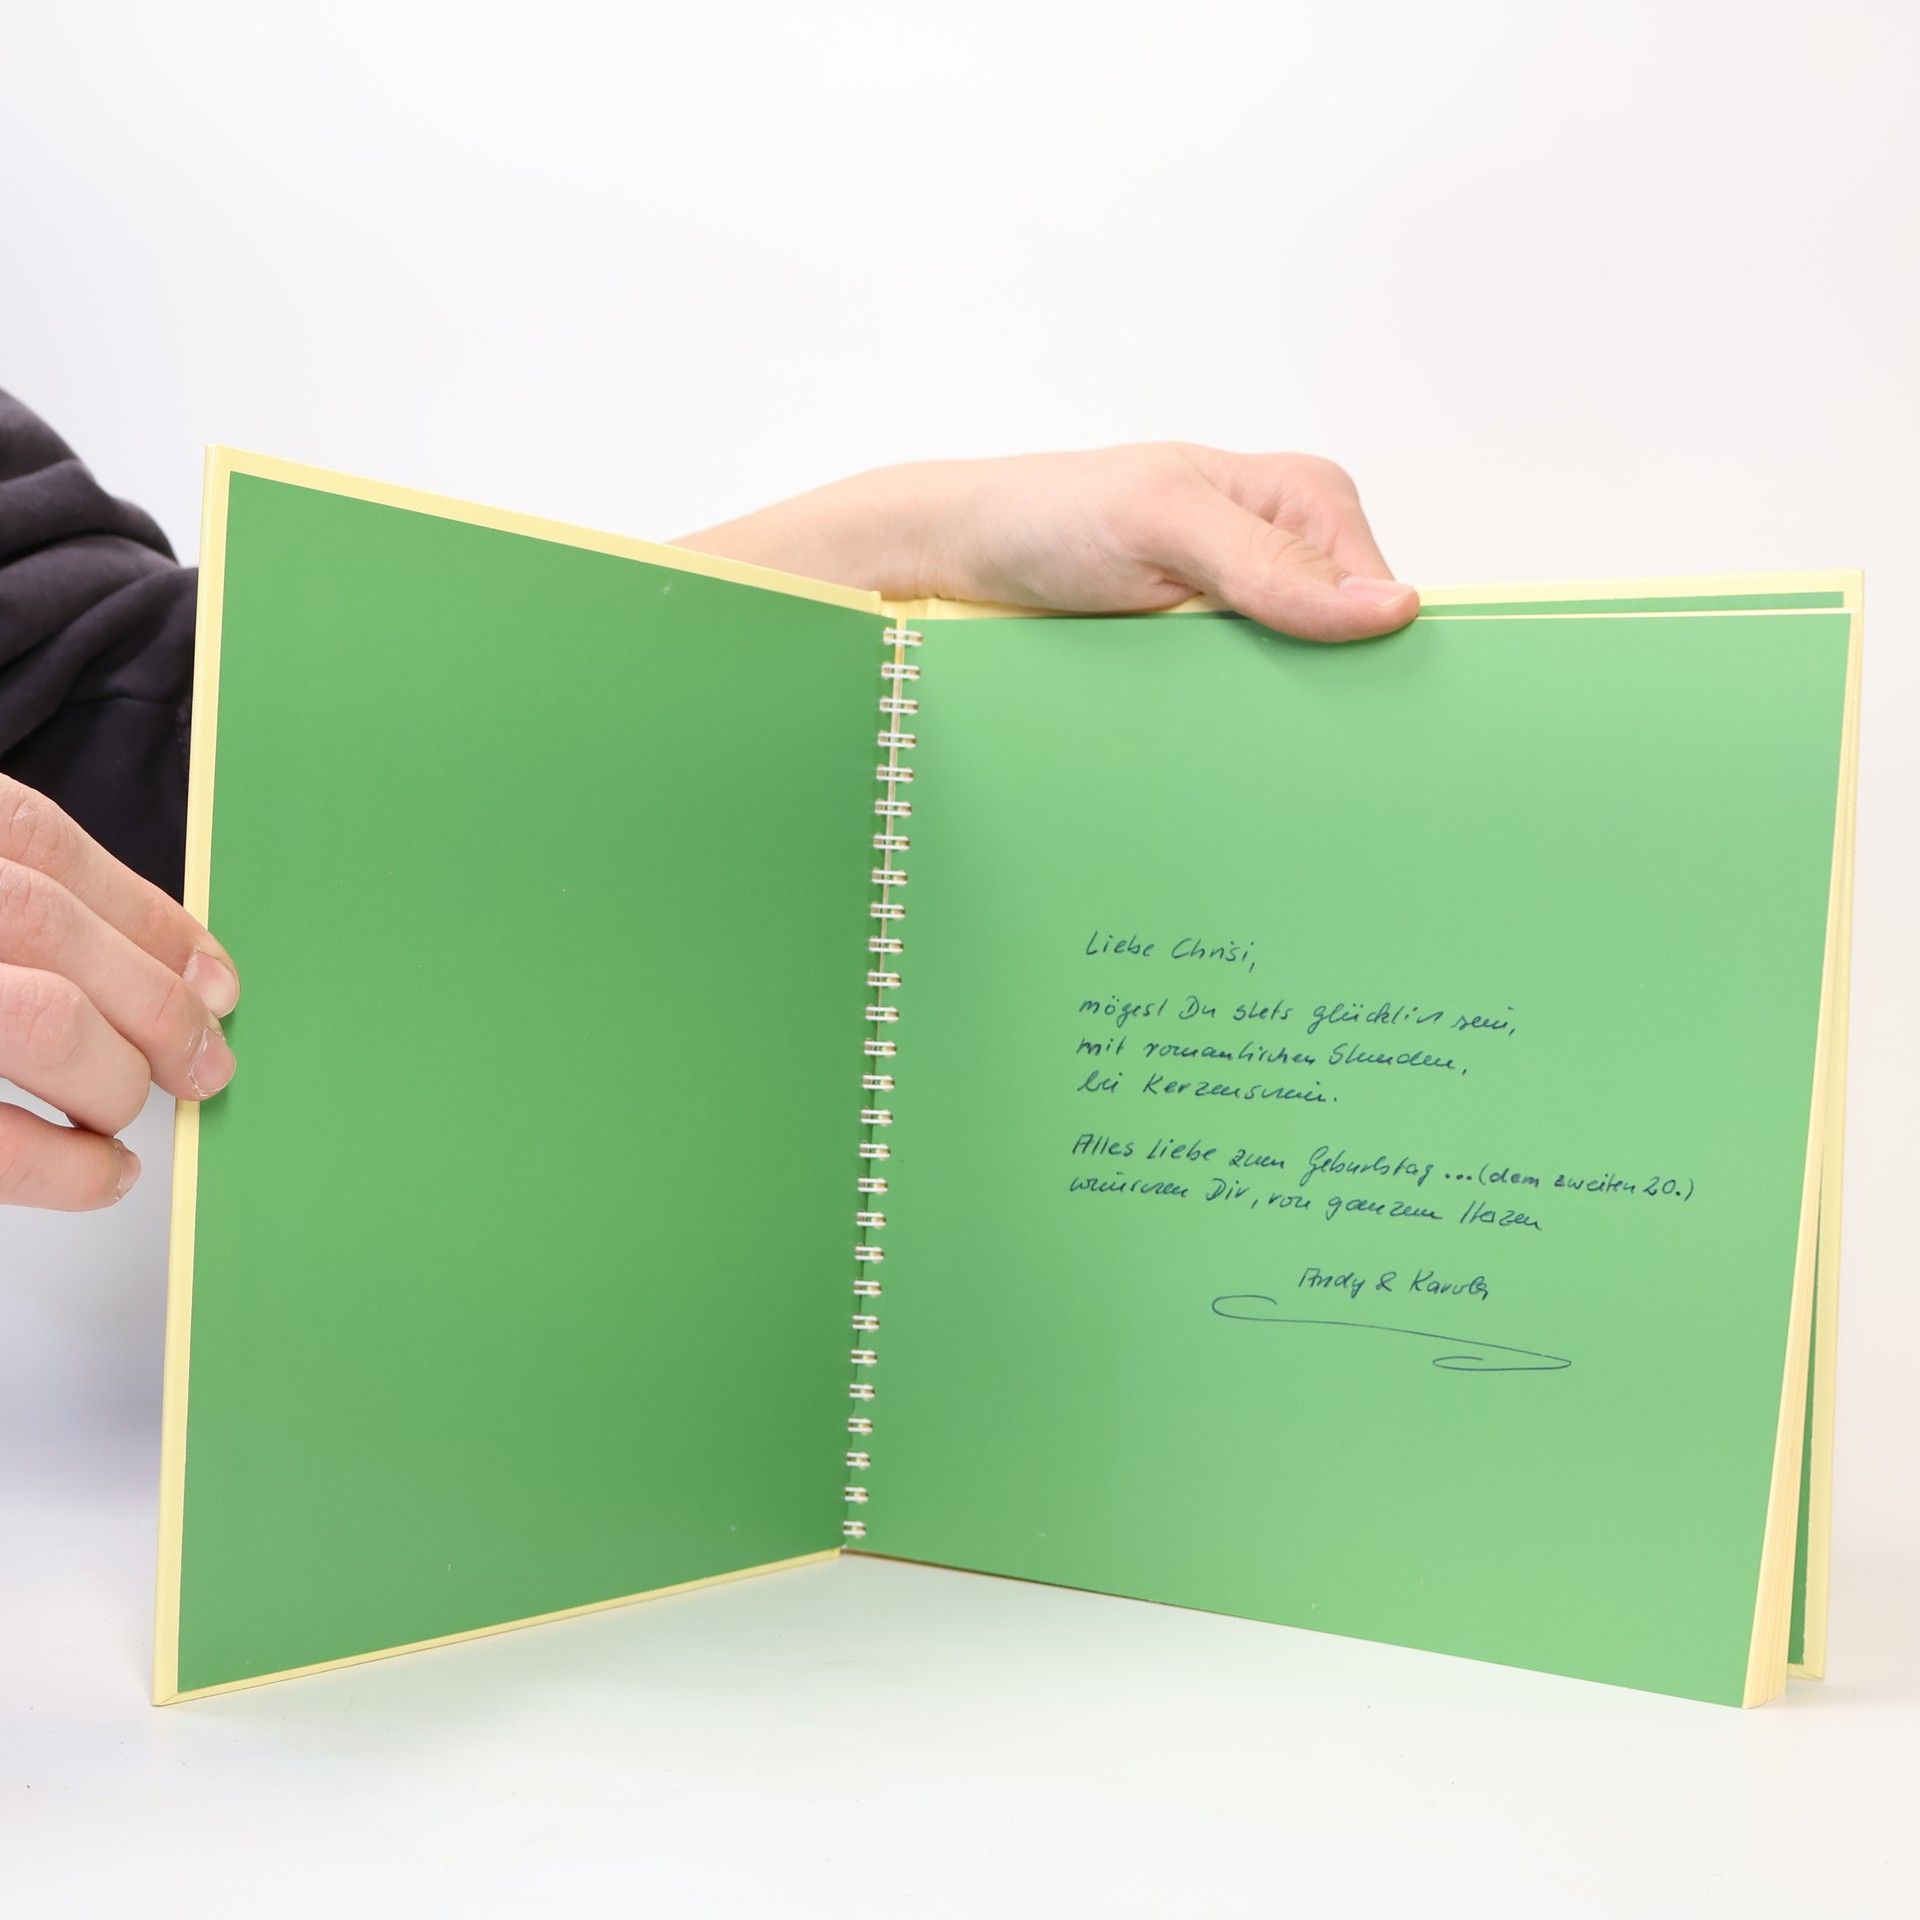 Liebe Chrisi,
mögest Du stets glücklich sein,
mit romantischen Stunden,
bei Kerzenschein.
Alles Liebe zum Geburtstag ... (dem zweiten 20.)
wünschen Dir, von ganzem Herzen
Andy & Karola